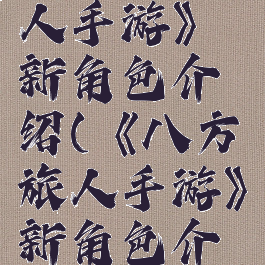 人手游》
新角色介
绍(《八方
旅人手游》
新角色介